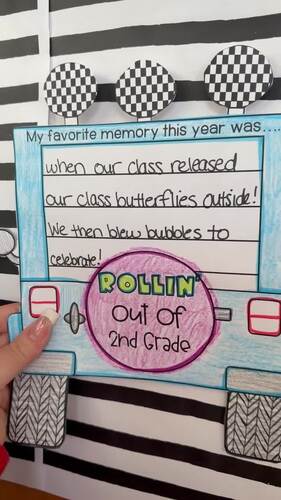 My favorite memory this year was....
when our class released
our class butterflies outside!
We then blew bubbles to
celebrate!
ROLLIN'
out of
2nd Grade